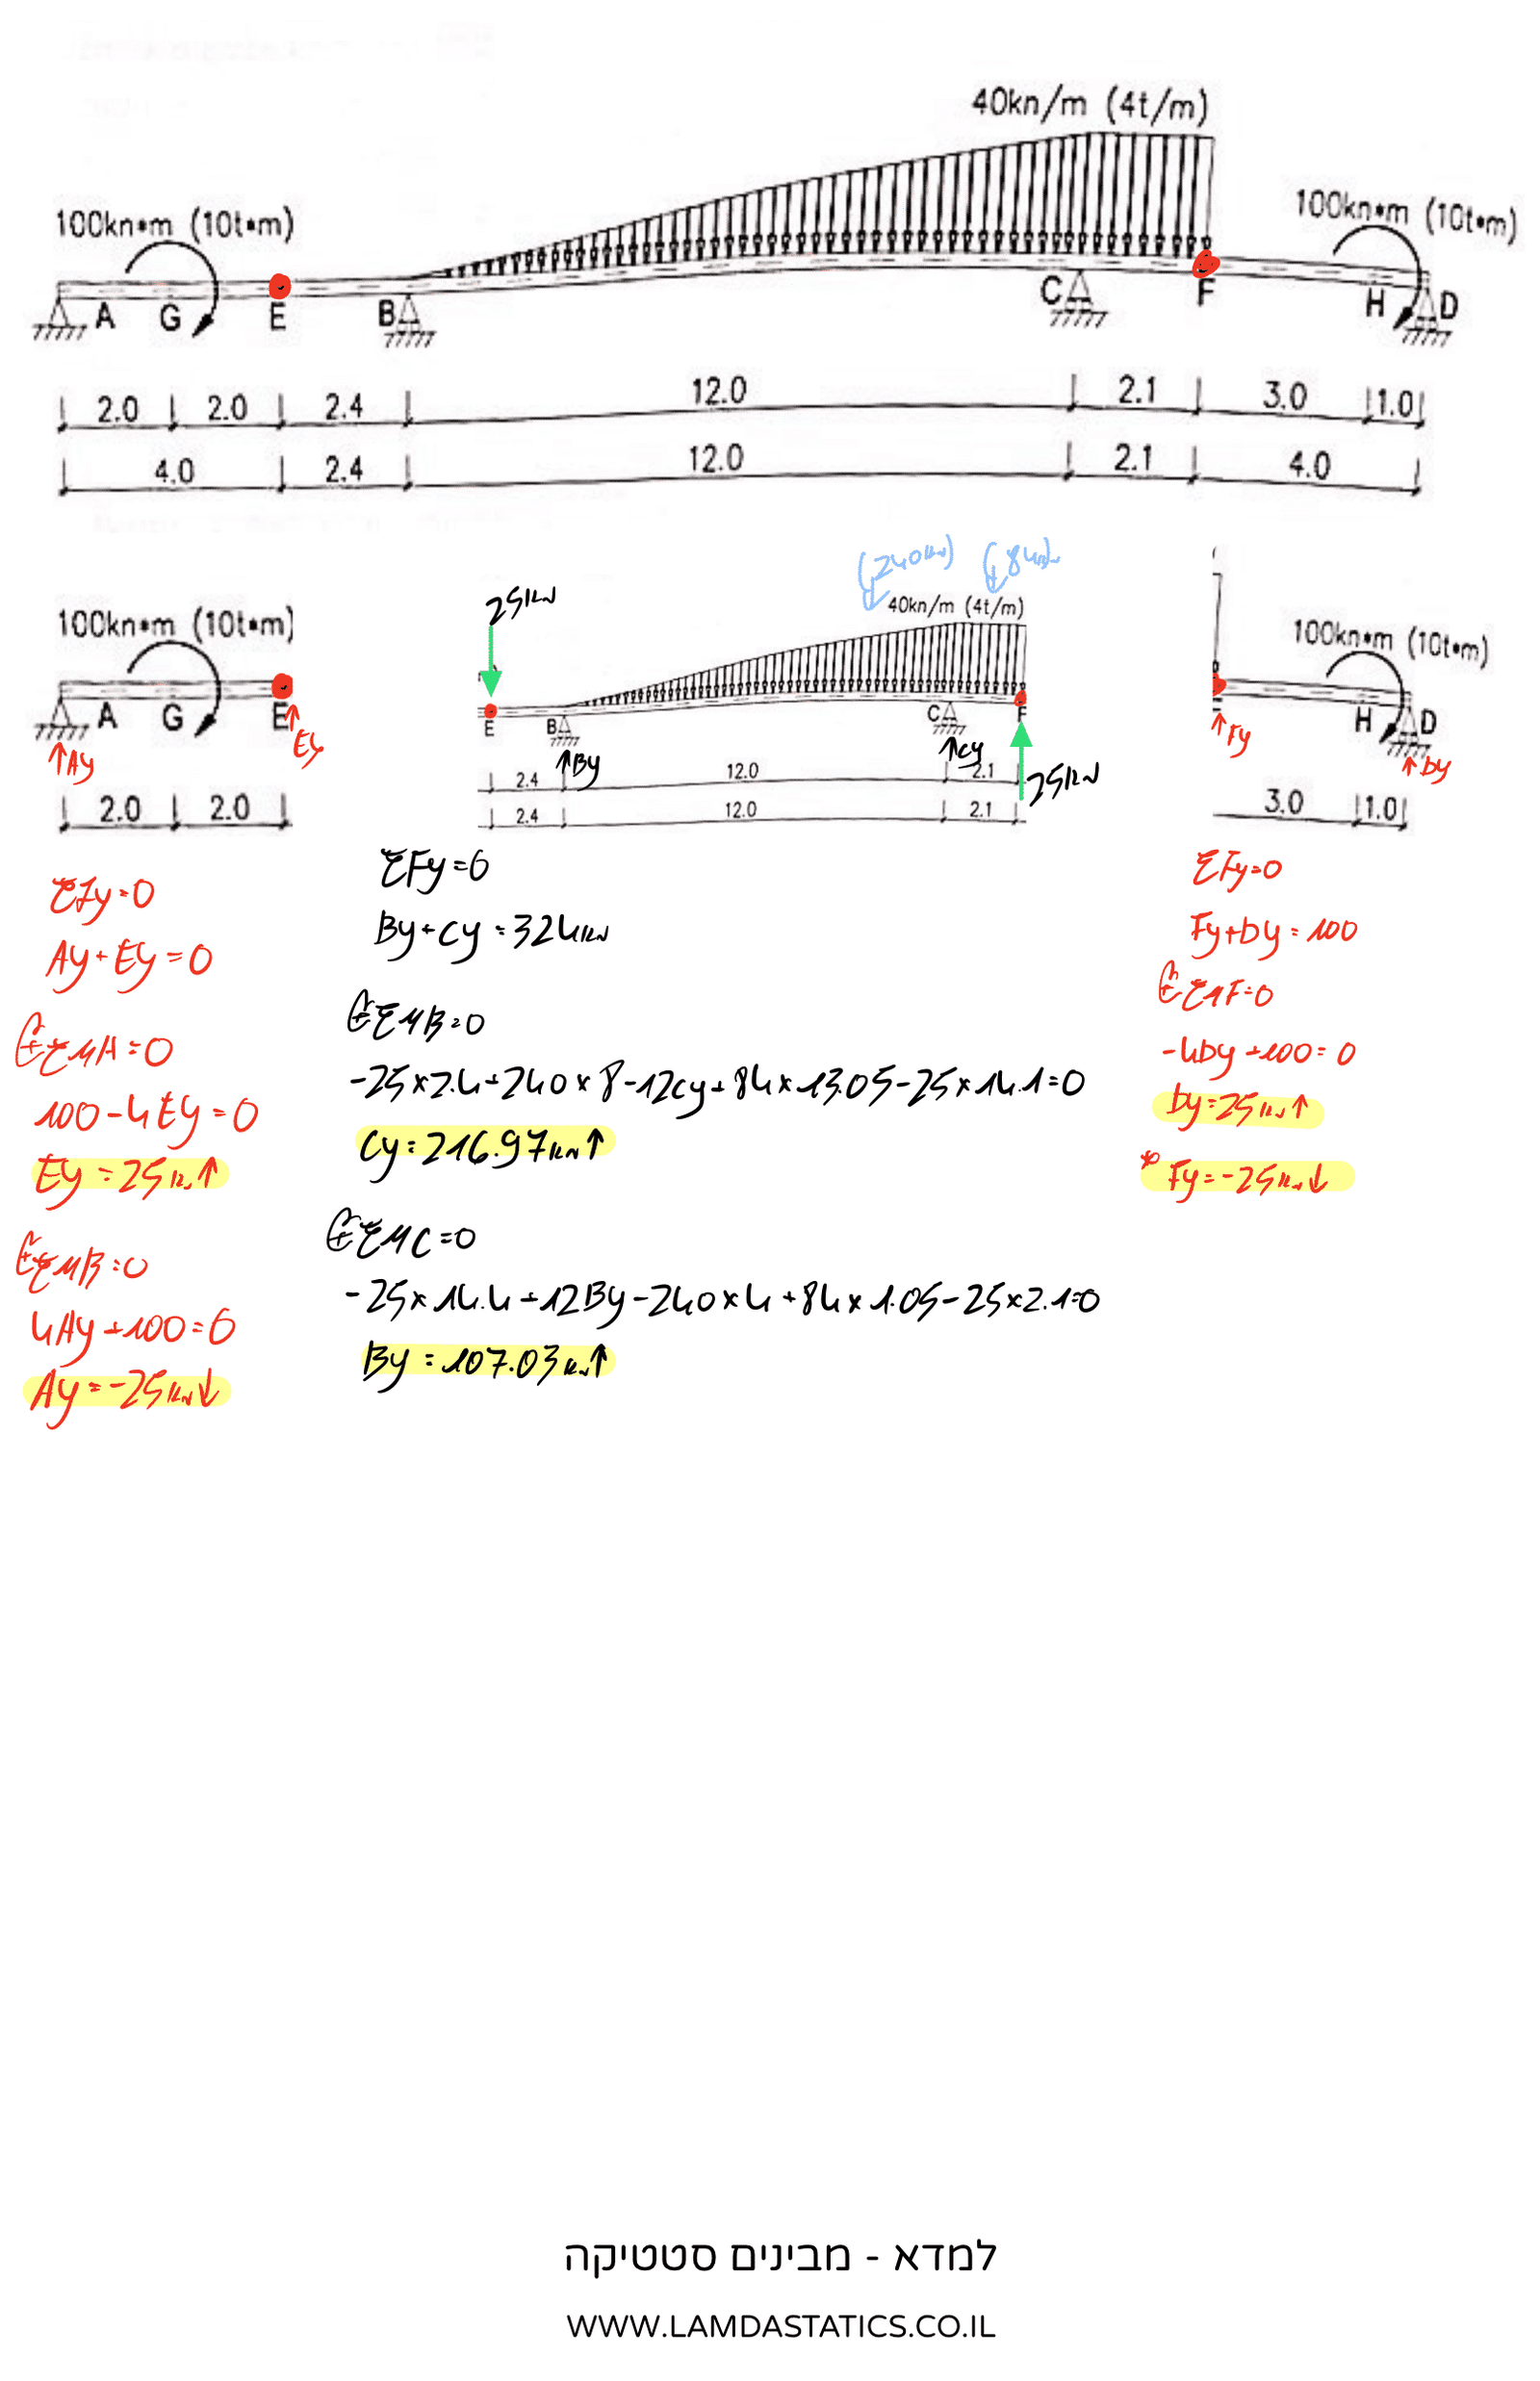 40kn/m (4t/m)
100kn•m (10t•m)
100kn•m (10t•m)
A G E B C F H D
2.0 2.0 2.4 12.0 2.1 3.0 1.0
4.0 2.4 12.0 2.1 4.0
(240kN) (84kN)
25kN
40kn/m (4t/m)
100kn•m (10t•m)
100kn•m (10t•m)
A G E
Ay Ey
E B C F
By Cy 25kN
H D
Fy Dy
2.0 2.0
2.4 12.0 2.1
2.4 12.0 2.1
3.0 1.0
ΣFy=0
Ay+Ey=0
ΣMA=0
100-4Ey=0
Ey=25kN↑
ΣMB=0
4Ay+100=0
Ay=-25kN↓
ΣFy=0
By+Cy=324kN
ΣMB=0
-25×2.4+240×8-12Cy+84×13.05-25×14.1=0
Cy=216.97kN↑
ΣMC=0
-25×14.4+12By-240×4+84×1.05-25×2.1=0
By=107.03kN↑
ΣFy=0
Fy+Dy=100
ΣMF=0
-4Dy+100=0
Dy=25kN↑
* Fy=-25kN↓
למדא - מבינים סטטיקה
WWW.LAMDASTATICS.CO.IL